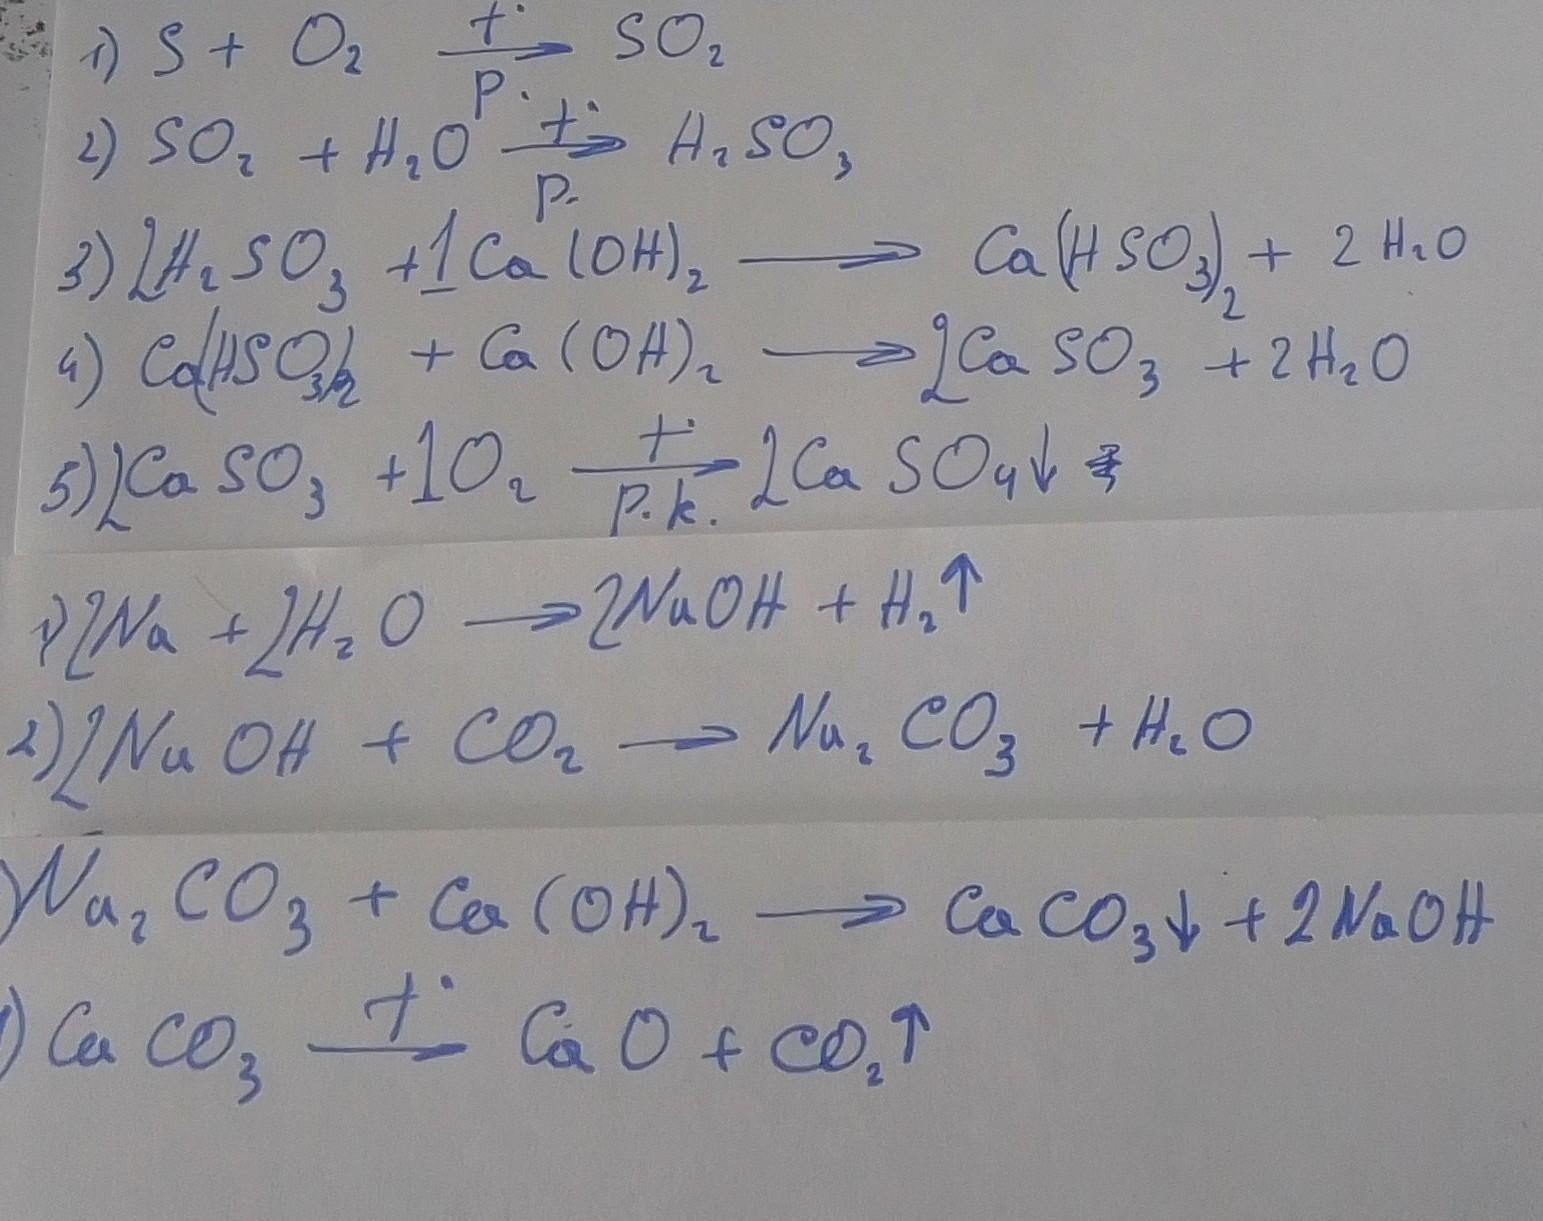 1) S + O₂ —t°/p.→ SO₂
2) SO₂ + H₂O —t°/p.→ H₂SO₃
3) 2H₂SO₃ + 1Ca(OH)₂ → Ca(HSO₃)₂ + 2H₂O
4) Ca(HSO₃)₂ + Ca(OH)₂ → 2CaSO₃ + 2H₂O
5) 2CaSO₃ + 1O₂ —t°/p.k.→ 2CaSO₄↓
1) 2Na + 2H₂O → 2NaOH + H₂↑
2) 2NaOH + CO₂ → Na₂CO₃ + H₂O
) Na₂CO₃ + Ca(OH)₂ → CaCO₃↓ + 2NaOH
) CaCO₃ —t°→ CaO + CO₂↑